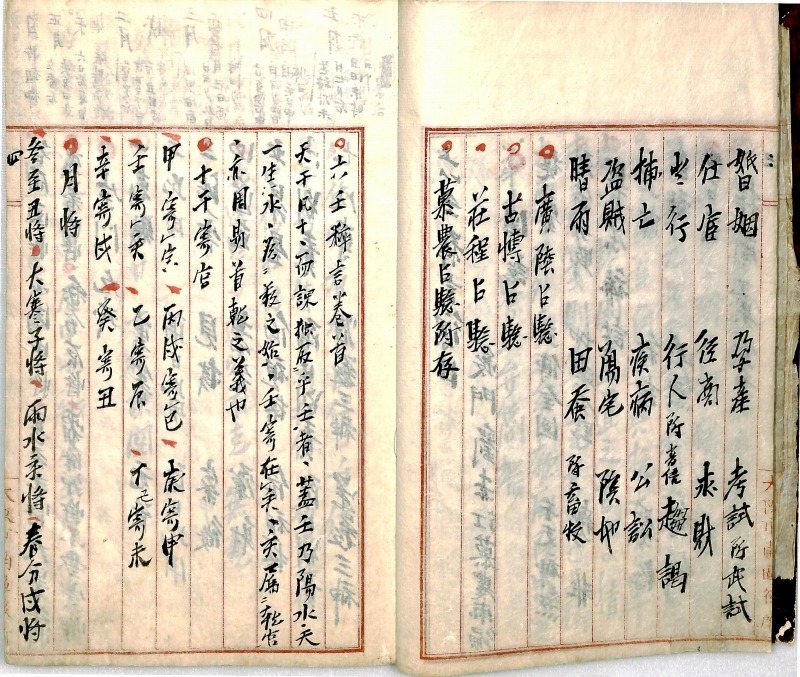 婚姻 孕產 考試附武試
仕宦 經商 求財
出行 行人附喜信 趨謁
捕亡 疾病 公訟
盜賊 陽宅 陰地
晴雨 田蚕附畜牧
廣陰占驗
古愽占驗
莊程占驗
慕農占驗附存
六壬粹言卷首
天干凡十、而課獨取乎壬者、蓋壬乃陽水天
一生水、為數之始、壬寄在亥、亥属乾宫
、亦周易首乾之義也
十干寄宫
甲寄寅、丙戊寄巳、庚寄申
壬寄亥、乙寄辰、丁己寄未
辛寄戌、癸寄丑
月將
冬至丑將、大寒子將、雨水亥將、春分戌將
四